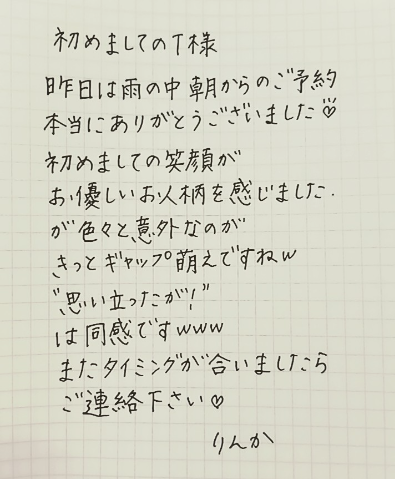 初めましてのT様
昨日は雨の中朝からのご予約
本当にありがとうございました♡
初めましての笑顔が
お優しいお人柄を感じました.
が色々と意外なのが
きっとギャップ萌えですねw
"思い立ったが!"
は同感ですwww
またタイミングが合いましたら
ご連絡下さい♡
りんか